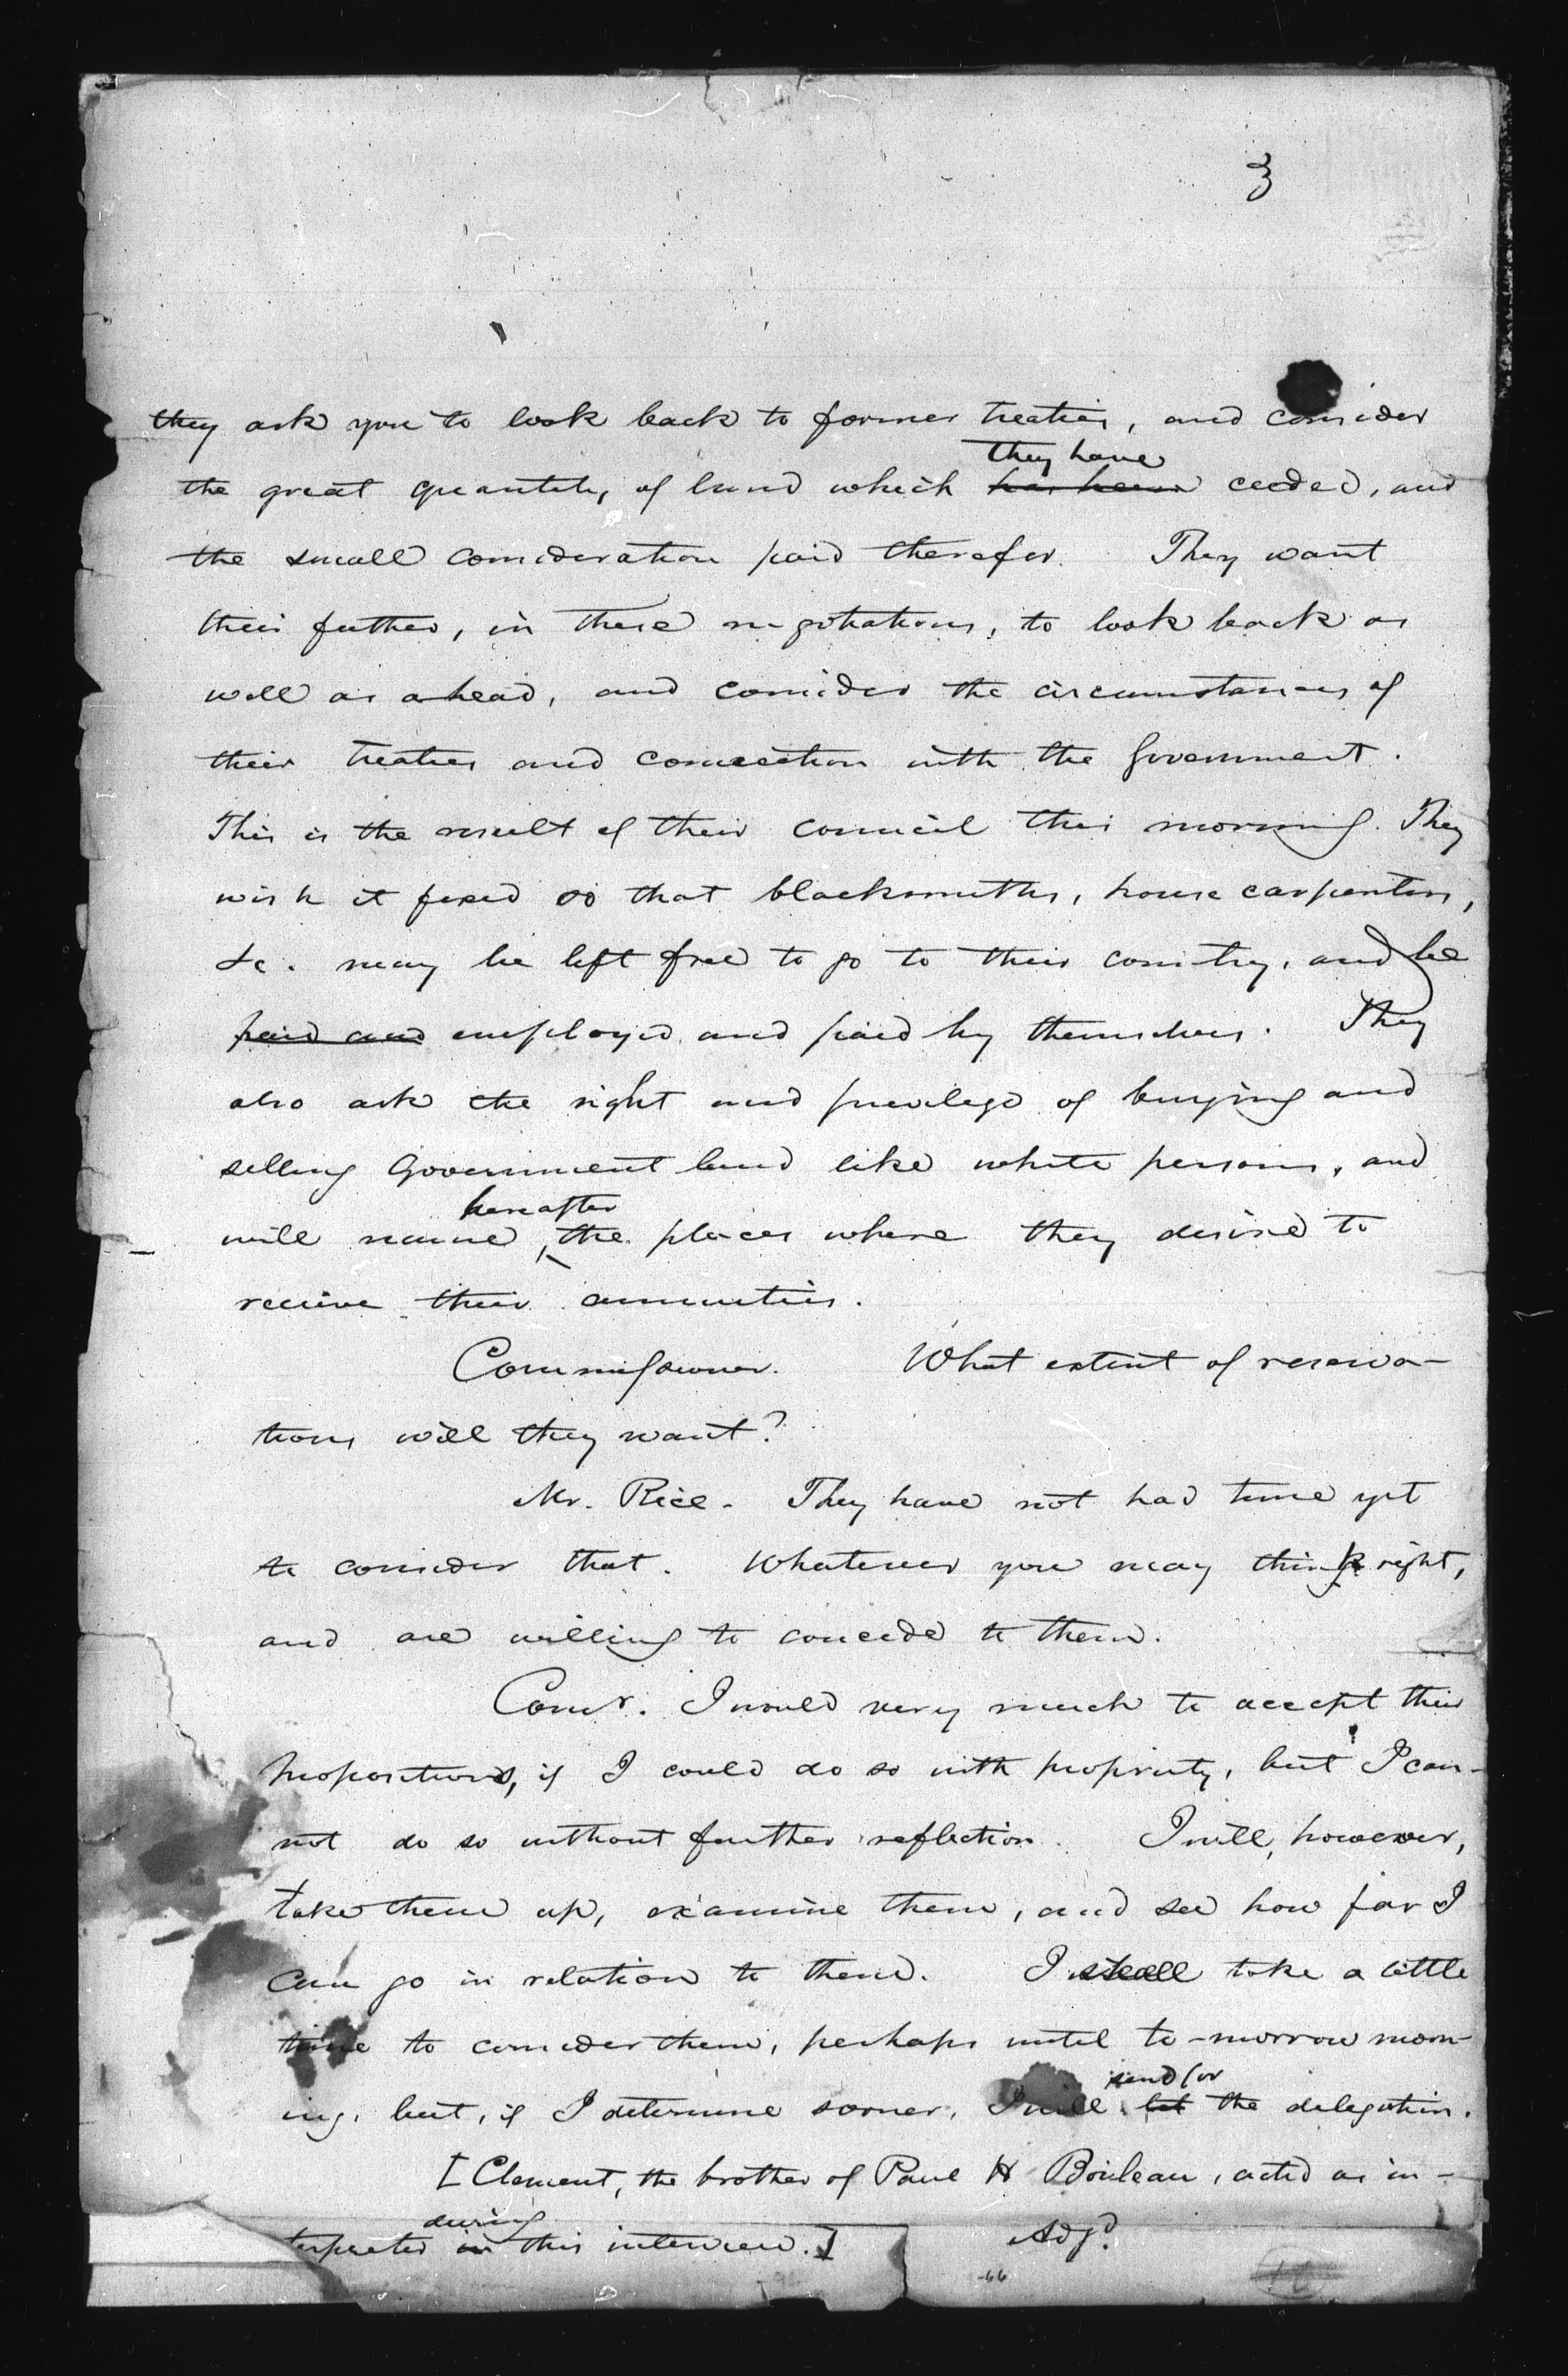 3
they ask you to look back to former treaties, and consider
they have
the great quantity of land which has been ceeded, and
the small consideration paid therefor. They want
their father, in these negotiations, to look back as
well as ahead, and consider the circumstances of
their treaties and connection with the Government.
This is the result of their council this morning. They
wish it fixed so that blacksmiths, house carpenters,
&c. may be left free to go to their country, and be
paid and employed and paid by themselves. They
also ask the right and privilege of buying and
selling Government land like white persons, and
hereafter
will name, the places where they desire to
receive their annuities.
Commissioner. What extent of reserva-
tions will they want?
Mr. Rice. They have not had time yet
to consider that. Whatever you may think right,
and are willing to concede to them.
Comr. I would very much to accept their
propositions, if I could do so with propriety, but I can-
not do so without further reflection. I will, however,
take them up, examine them, and see how far I
can go in relation to them. I shall take a little
time to consider them, perhaps until to-morrow morn-
send for
ing, but, if I determine sooner, I will let the delegation.
[Clement, the brother of Paul H Boileau, acted as in-
during
terpreter in this interview.] Adjd.
-66